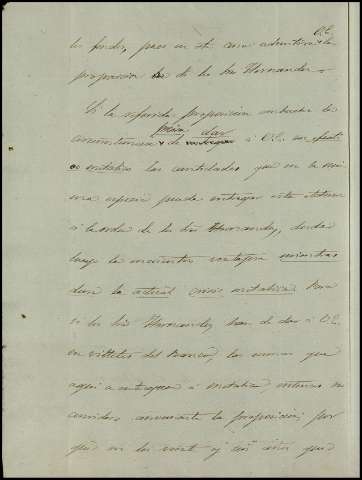 V.E.
los fondos, pues en este caso admitira la
proposicion de los Sres Hernandez.
Si la referida proposicion embuelve la
para dar
circunstancia de entregar á V.E. en
metalico las cantidades que en la mis
ma especie pueda entregar este
á la orden de los Sres Hernandez, desde
luego la encuentro ventajosa mientras
dure la actual crisis metalica. Pero
si los Sres Hernandez han de dar á V.E.
en villetes del Banco, las sumas que
aqui se entreguen á metalico, entonces no
considero conveniente la proposicion; por
que en los veinte y